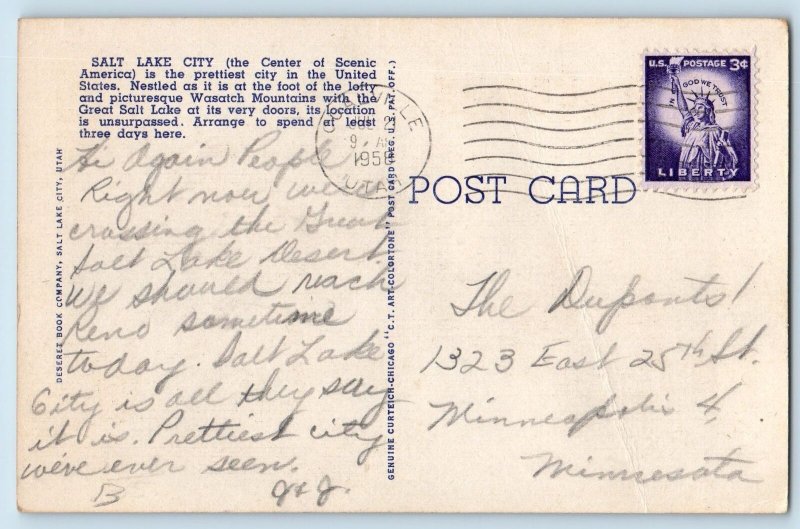 SALT LAKE CITY (the Center of Scenic
America) is the prettiest city in the United
States. Nestled as it is at the foot of the lofty
and picturesque Wasatch Mountains with the
Great Salt Lake at its very doors, its location
is unsurpassed. Arrange to spend at least
three days here.
Hi Again People
Right now we're
crossing the Great
Salt Lake Desert.
We should reach
Reno sometime
today. Salt Lake
City is all they say
it is. Prettiest city
we've ever seen.
B J & J.
DESERET BOOK COMPANY, SALT LAKE CITY, UTAH
GENUINE CURTEICH-CHICAGO "C.T. ART-COLORTONE" POST CARD (REG. U.S. PAT. OFF.)
9 A
UTAH
U.S. POSTAGE 3¢
IN GOD WE TRUST
LIBERTY
POST CARD
The Duponts!
1323 East 25th St.
Minneapolis 4,
Minnesota